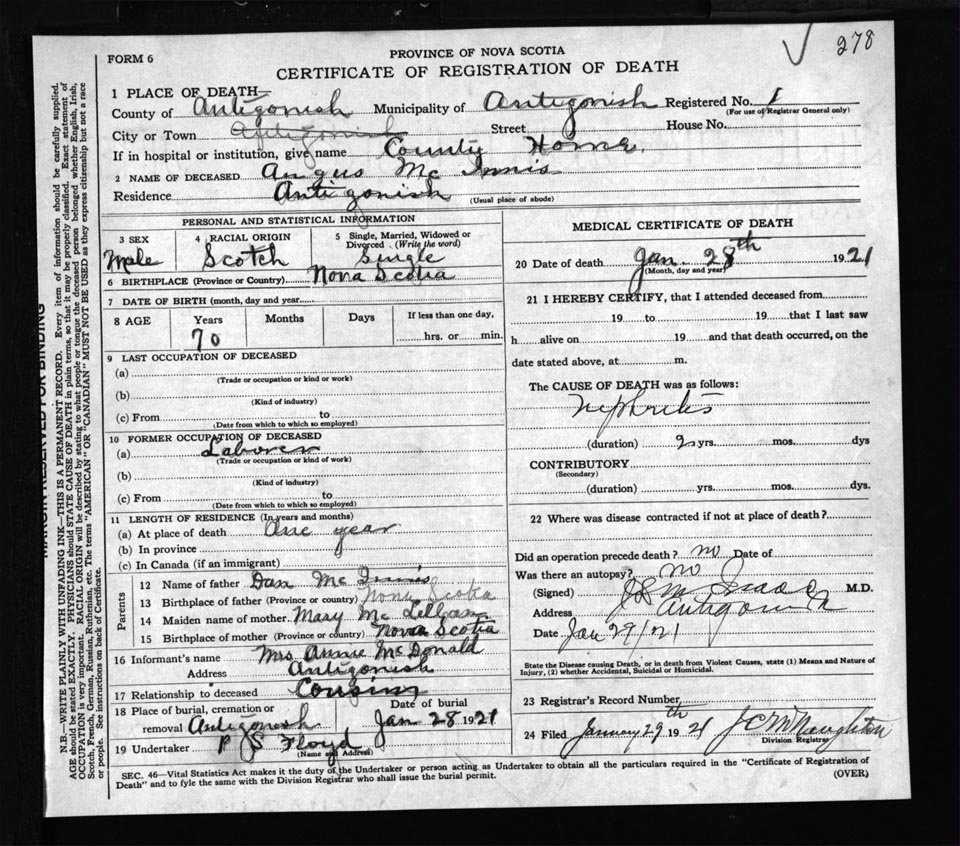 278
FORM 6
PROVINCE OF NOVA SCOTIA
CERTIFICATE OF REGISTRATION OF DEATH
1 PLACE OF DEATH—
County of Antigonish Municipality of Antigonish Registered No. 1
(For use of Registrar General only)
City or Town Antigonish Street House No.
If in hospital or institution, give name County Home.
2 NAME OF DECEASED Angus Mc Innis
Residence Antigonish
(Usual place of abode)
PERSONAL AND STATISTICAL INFORMATION
3 SEX Male
4 RACIAL ORIGIN Scotch
5 Single, Married, Widowed or Divorced (Write the word) Single
6 BIRTHPLACE (Province or Country) Nova Scotia
7 DATE OF BIRTH (month, day and year)
8 AGE Years Months Days If less than one day,
70 hrs. or min.
9 LAST OCCUPATION OF DECEASED
(a)
(Trade or occupation or kind or work)
(b)
(Kind of industry)
(c) From to
(Date from which to which so employed)
10 FORMER OCCUPATION OF DECEASED
(a) Laborer
(Trade or occupation or kind of work)
(b)
(Kind of industry)
(c) From to
(Date from which to which so employed)
11 LENGTH OF RESIDENCE (In years and months)
(a) At place of death One year
(b) In province
(c) In Canada (if an immigrant)
Parents
12 Name of father Dan Mc Innis
13 Birthplace of father (Province or country) Nova Scotia
14 Maiden name of mother Mary Mc Lellan
15 Birthplace of mother (Province or country) Nova Scotia
16 Informant's name Mrs Annie McDonald
Address Antigonish
17 Relationship to deceased Cousing
18 Place of burial, cremation or removal Antigonish Date of burial Jan 28 1921
19 Undertaker P S Floyd
(Name and Address)
MEDICAL CERTIFICATE OF DEATH
20 Date of death Jan. 28th 1921
(Month, day and year)
21 I HEREBY CERTIFY, that I attended deceased from
19 to 19 that I last saw
h alive on 19 and that death occurred, on the
date stated above, at m.
The CAUSE OF DEATH was as follows:
Nephritis
(duration) 2 yrs. mos. dys
CONTRIBUTORY
(Secondary)
(duration) yrs. mos. dys.
22 Where was disease contracted if not at place of death?
Did an operation precede death? no Date of
Was there an autopsy? no
(Signed) M.D.
Address Antigonish
Date Jan 29/21
State the Disease causing Death, or in death from Violent Causes, state (1) Means and Nature of
Injury, (2) whether Accidental, Suicidal or Homicidal.
23 Registrar's Record Number
24 Filed January 29th 1921 J C McNaughton
Division Registrar
SEC. 46—Vital Statistics Act makes it the duty of the Undertaker or person acting as Undertaker to obtain all the particulars required in the "Certificate of Registration of
Death" and to fyle the same with the Division Registrar who shall issue the burial permit.
(OVER)
MARGIN RESERVED FOR BINDING
N.B.—WRITE PLAINLY WITH UNFADING INK—THIS IS A PERMANENT RECORD. Every item of information should be carefully supplied.
AGE should be stated EXACTLY. PHYSICIANS should STATE CAUSE OF DEATH in plain terms, so that it may be properly classified. Exact statement of
OCCUPATION is very important. RACIAL ORIGIN will be described by stating to what people or tongue the deceased person belonged whether English, Irish,
Scotch, French, German, Russian, Ruthenian, etc. The terms "AMERICAN" OR "CANADIAN" MUST NOT BE USED as they express citizenship but not a race
or people. See instructions on back of Certificate.